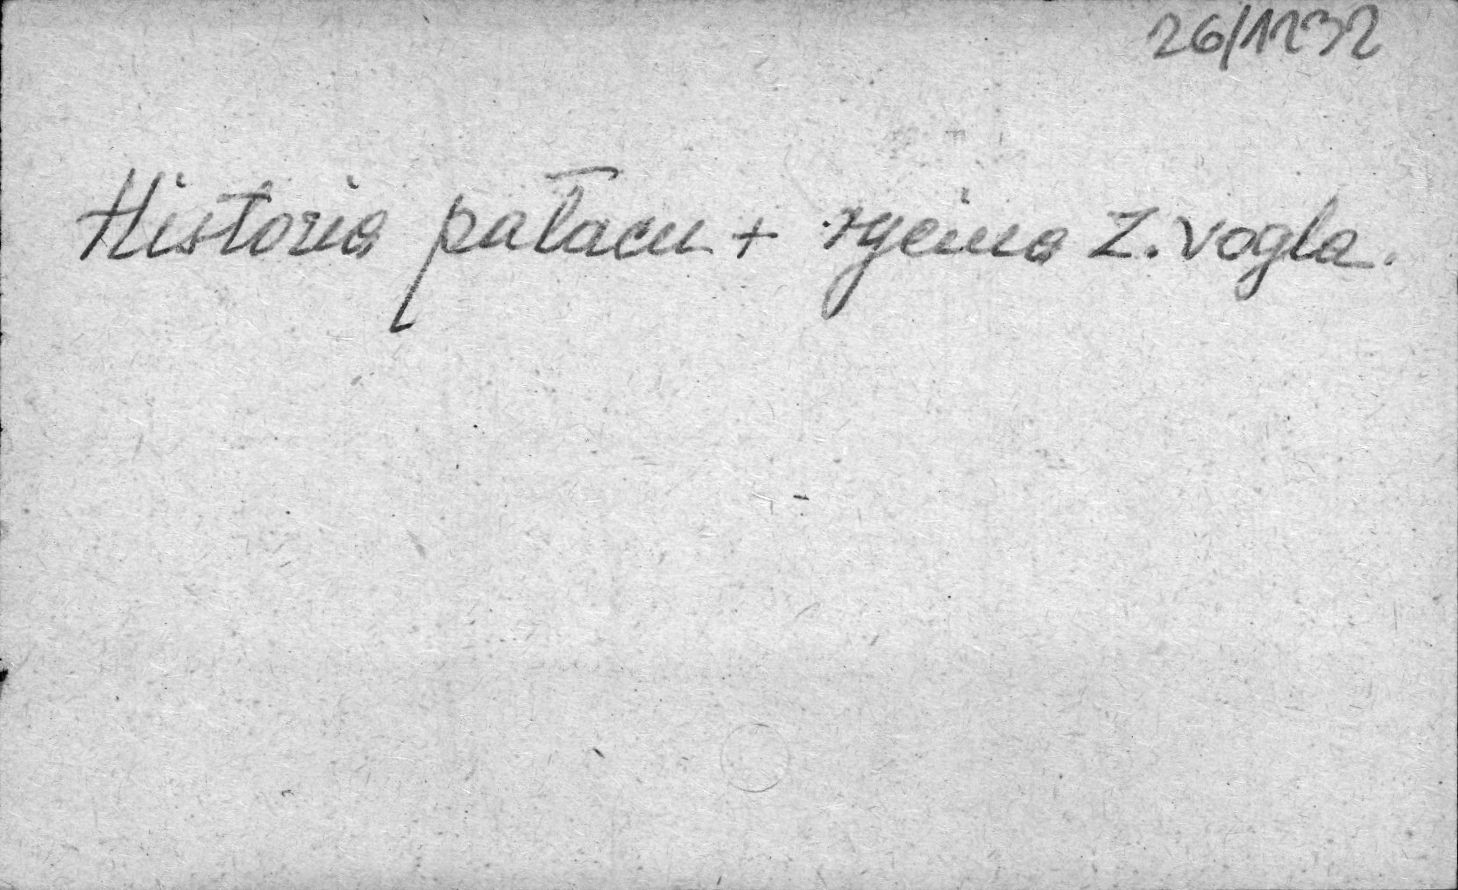 26/1232
Historia pałacu + rycina Z. Vogla.